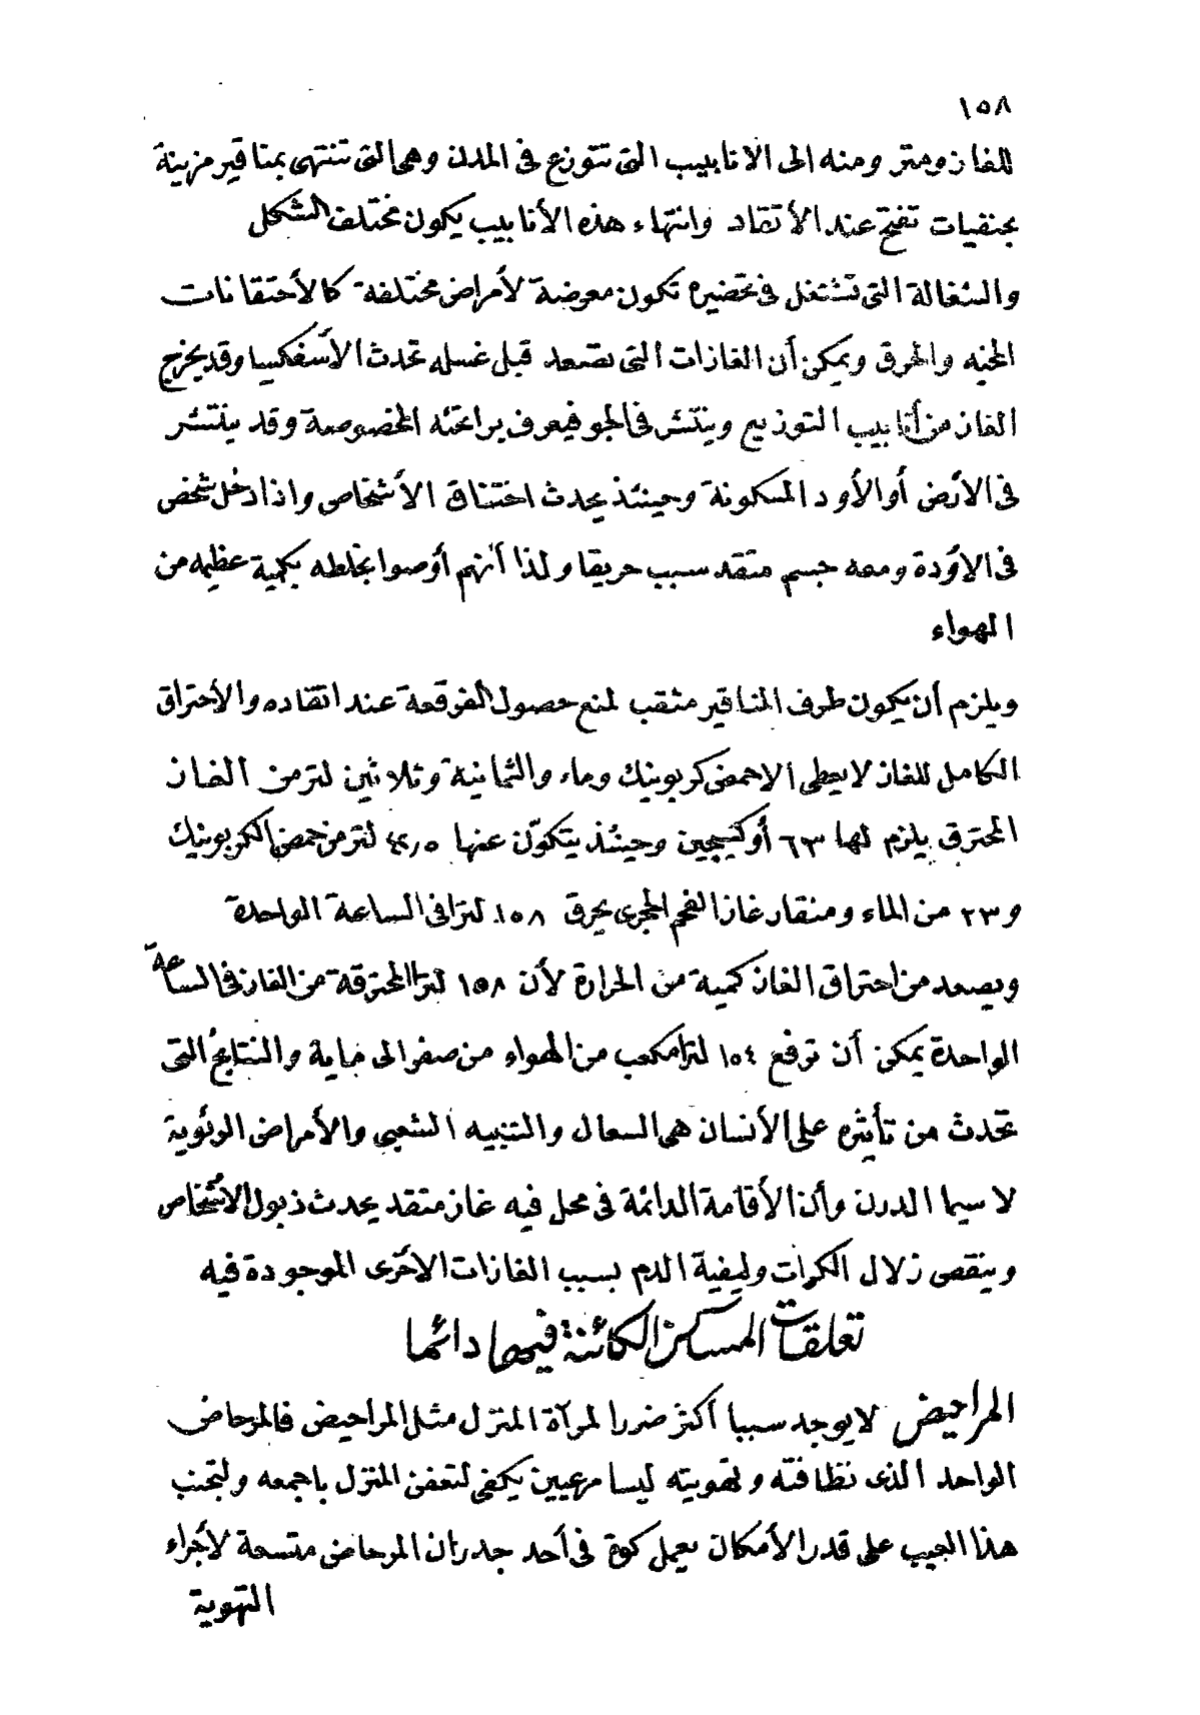 ١٥٨
للغازومتر ومنه الى الانابيب التى تتوزع فى المدن وهى التى تنتهى بمناقير مزينة
بحنفيات تفتح عند الأتقاد وانتهاء هذه الأنابيب يكون مختلف الشكل
والشغالة التى تشتغل فى تحضيره تكون معرضة لأمراض مختلفة كالأحتقانات
المخيه والحرق ويمكن أن الغازات التى تصعد قبل غسله تحدث الأسفكسيا وقد يخرج
الغاز من أنابيب التوزيع وينتشر فى الجو فيعرف برائحته المخصوصة وقد ينتشر
فى الأرض أو الأود المسكونة وحينئذ يحدث اختناق الأشخاص واذا دخل شخص
فى الأودة ومعه جسم متقد سبب حريقا ولذا أنهم أوصوا بخلطه بكمية عظيمه من
الهواء
ويلزم أن يكون طرف المناقير مثقب لمنع حصول الفرقعة عند اتقاده والأحتراق
الكامل للغاز لا يعطى الا حمض كربونيك وماء والثمانية وثلاثين لتر من الغاز
المحترق يلزم لها ٦٣ أوكسيجين وحينئذ يتكوّن عنها لتر من حمض الكربونيك
و٢٣ من الماء ومنقار غاز الفحم الحجرى يحرق ١٥٨ لترا فى الساعة الواحدة
ويصعد من احتراق الغاز كمية من الحرارة لأن ١٥٨ لترا المحترقة من الغاز فى الساعة
الواحدة يمكن أن ترفع ١٥٤ لترا مكعب من الهواء من صفر الى ماية والنتايج التى
تحدث من تأثيره على الأنسان هى السعال والتنبيه الشعبى والأمراض الرئوية
لا سيما الدرن وأن الأقامة الدائمة فى محل فيه غاز متقد يحدث ذبول الأشخاص
وينقص زلال الكرات وليفية الدم بسبب الغازات الأخرى الموجودة فيه
تعلقات المساكن الكائنة فيها دائما
المراحيض لا يوجد سببا أكثر ضررا لمرآة المنزل مثل المراحيض فالمرحاض
الواحد الذى نظافته وتهويته ليسا مرعيين يكفى لتعفن المنزل باجمعه ولتجنب
هذا العيب على قدر الأمكان يعمل كوة فى أحد جدران المرحاض متسعة لأجراء
التهوية